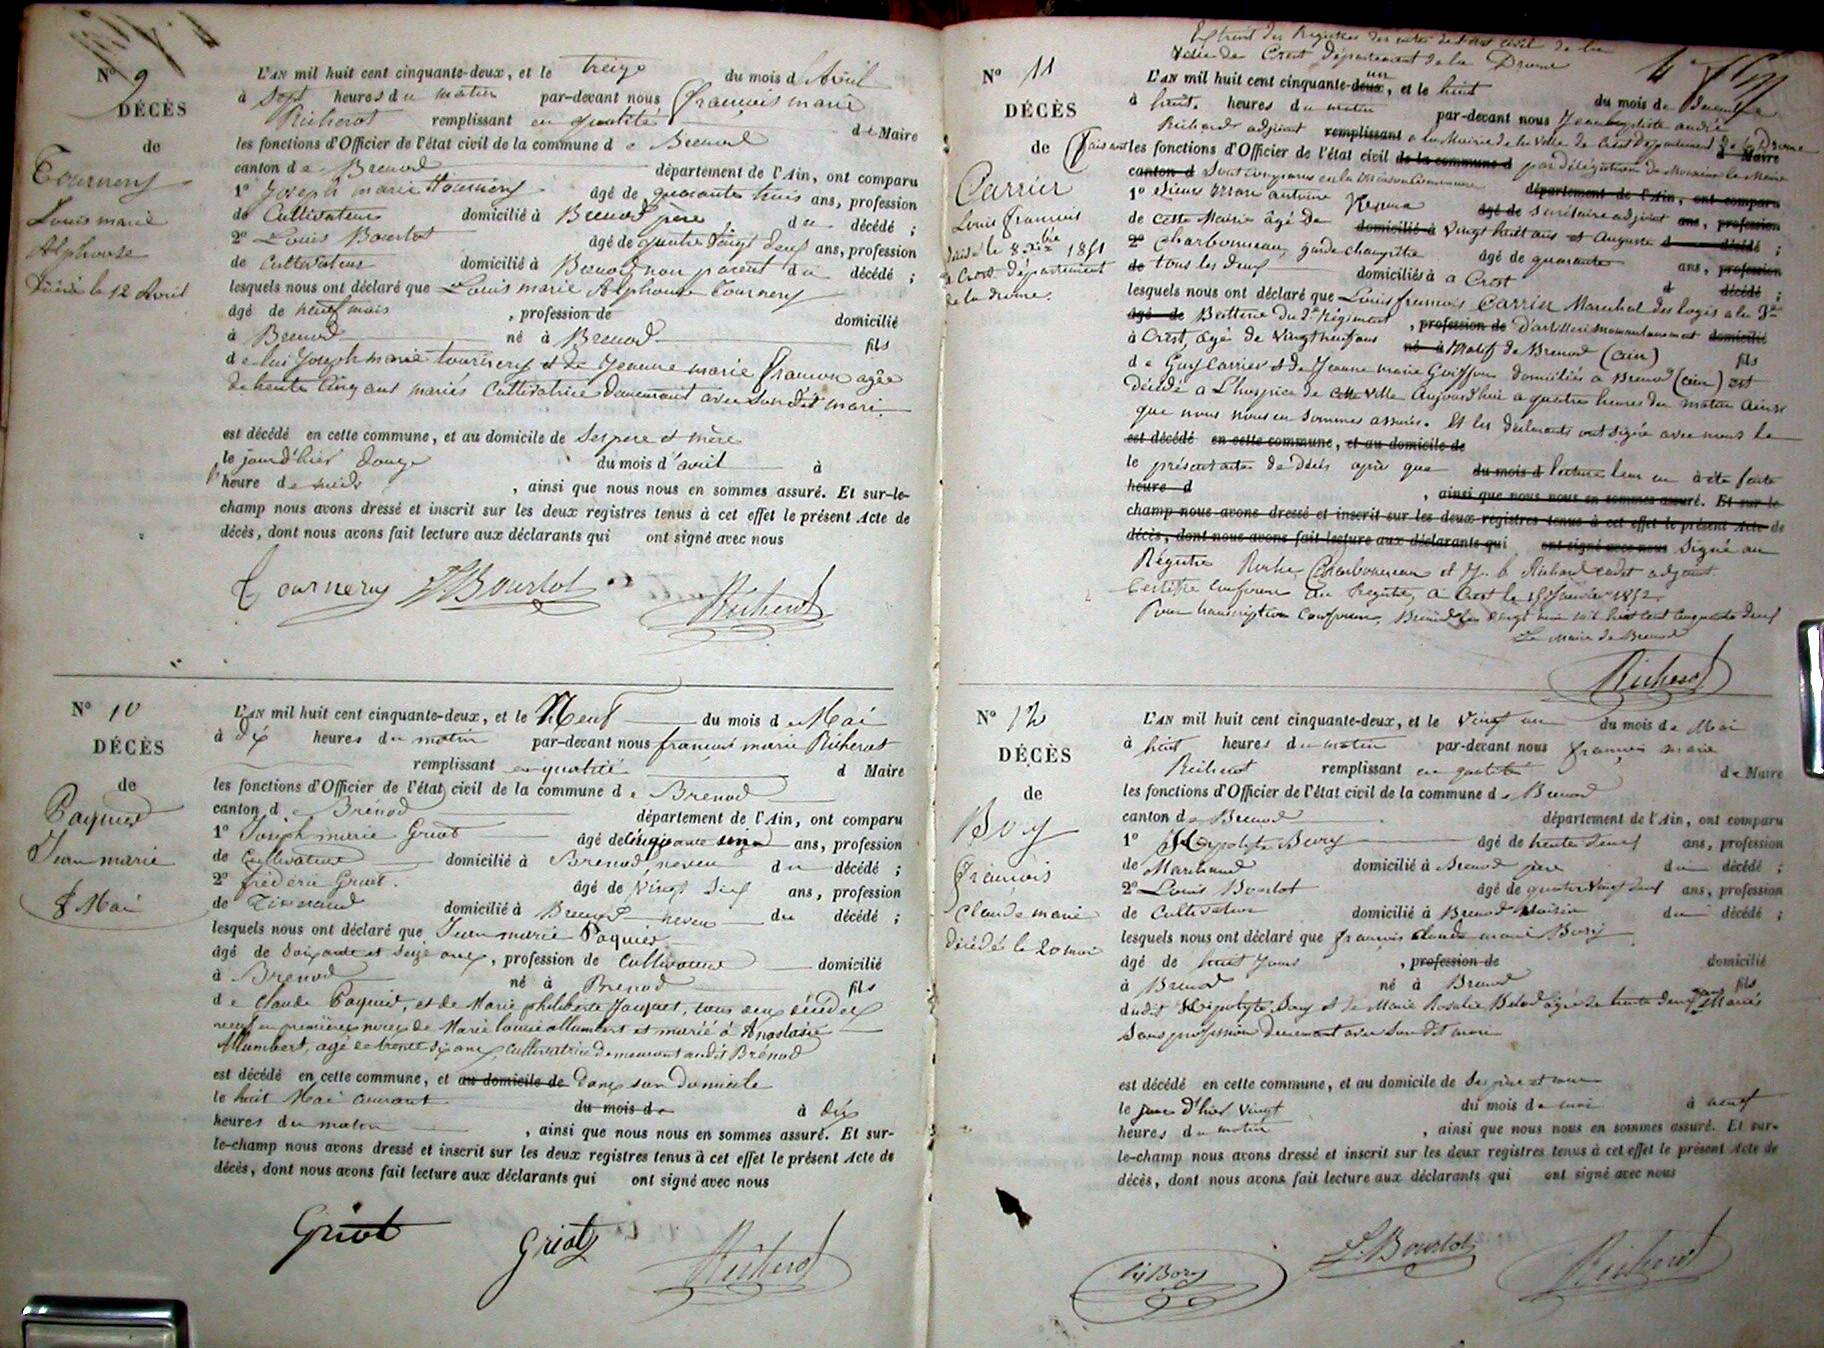 N° 9
DÉCÈS
de
Tournery
Louis marie
Alphonse
Décédé le 12 Avril
L'AN mil huit cent cinquante-deux, et le treize du mois d'Avril
à Sept heures du matin par-devant nous françois marie
Richerot remplissant en qualité de Maire
les fonctions d'Officier de l'état civil de la commune de Brenod
canton de Brenod département de l'Ain, ont comparu
1° Joseph marie Tournery âgé de quarante trois ans, profession
de Cultivateur domicilié à Brenod père du décédé ;
2° Louis Bourlot âgé de quatre vingt deux ans, profession
de Cultivateur domicilié à Brenod non parent du décédé ;
lesquels nous ont déclaré que Louis marie Alphonse Tournery
âgé de neuf mois , profession de domicilié
à Brenod né à Brenod fils
de lui Joseph marie tournery et de Jeanne marie françon agée
de trente cinq ans mariés Cultivatrice demeurant avec son dit mari
est décédé en cette commune, et au domicile de Ses père et mère
le jour d'hier douze du mois d'avril à
l'heure de midi , ainsi que nous nous en sommes assuré. Et sur-le-
champ nous avons dressé et inscrit sur les deux registres tenus à cet effet le présent Acte de
décès, dont nous avons fait lecture aux déclarants qui ont signé avec nous
Tournery L Bourlot Richerot
N° 10
DÉCÈS
de
Paquier
Jean marie
8 Mai
L'AN mil huit cent cinquante-deux, et le Neuf du mois de Mai
à dix heures du matin par-devant nous françois marie Richerot
remplissant en qualité d Maire
les fonctions d'Officier de l'état civil de la commune de Brenod
canton de Brénod département de l'Ain, ont comparu
1° Joseph marie Griot âgé de cinquante ans, profession
de Cultivateur domicilié à Brenod neveu du décédé ;
2° frédéric Griot. âgé de vingt ans, profession
de Tisserand domicilié à Brenod neveu du décédé ;
lesquels nous ont déclaré que Jean marie Paquier
âgé de Soixante et seize ans, profession de Cultivateur domicilié
à Brenod né à Brenod fils
de Claude Paquier, et de Marie philiberte Jacquet, tous deux décédés
veuf en premières noces de Marie louise allumbert et marié à Anastasie
Allumbert, agé de trente six ans, Cultivatrice demeurant audit Brénod
est décédé en cette commune, et au domicile de dans son domicile
le huit Mai courant du mois de à dix
heures du matin , ainsi que nous nous en sommes assuré. Et sur-
le-champ nous avons dressé et inscrit sur les deux registres tenus à cet effet le présent Acte de
décès, dont nous avons fait lecture aux déclarants qui ont signé avec nous
Griot Griot Richerot
Extrait des Registres des actes de l'état civil de la
Ville de Crest Département de la Drome
N° 11
DÉCÈS
de
Carrier
Louis françois
décédé le 8 Xbre 1851
à Crest département
de la drome.
L'AN mil huit cent cinquante-deux un, et le huit du mois de
à huit heures du matin par-devant nous Jean baptiste andré
Richard adjoint remplissant a la Mairie de la Ville de Crest Département de la Drome d Maire
faisant les fonctions d'Officier de l'état civil de la commune d par délégation de Monsieur le Maire
canton d Sont comparus en la maison Commune département de l'Ain, ont comparu
1° Sieurs Marc antoine âgé de Secrétaire adjoint ans, profession
de Cette Mairie âgé de domicilié à vingt huit ans et Auguste d décédé ;
2° Charbonneau, garde champêtre âgé de quarante ans, profession
de tous les deux domiciliés à a Crest d décédé ;
lesquels nous ont déclaré que Louis françois Carrier Marechal des logis a la 3me
âgé de Batterie du 2e Régiment , profession de D'artillerie momentanement domicilié
à Crest, agé de Vingt neuf ans né à Natif de Brenod (ain) fils
de Guy Carrier et de Jeanne marie Goiffon domiciliés a Brenod (ain) est
Décédé a L'hospice de cette ville Aujourd'hui a quatre heures du matin ainsi
que nous nous en sommes assurés. Et les déclarants ont signé avec nous le
est décédé en cette commune, et au domicile de
le présent acte de Décès après que du mois d lecture leur en a été faite
heure d , ainsi que nous nous en sommes assuré. Et sur-le-
champ nous avons dressé et inscrit sur les deux registres tenus à cet effet le présent Acte de
décès, dont nous avons fait lecture aux déclarants qui ont signé avec nous Signé au
Régistre Charbonneau et J. b Richard cadet adjoint.
Certifié conforme au Registre, a Crest le Janvier 1852.
Pour transcription conforme, Brenod le vingt mai mil huit cent cinquante deux
Le maire de Brenod
Richerot
N° 12
DÉCÈS
de
Bory
François
Claude marie
décédé le 20 mai
L'AN mil huit cent cinquante-deux, et le vingt un du mois de Mai
à huit heures du matin par-devant nous françois marie
Richerot remplissant en qualité de Maire
les fonctions d'Officier de l'état civil de la commune de Brenod
canton de Brenod département de l'Ain, ont comparu
1° Hipolyte Bory âgé de trente neuf ans, profession
de Marchand domicilié à Brenod père du décédé ;
2° Louis Bourlot âgé de quatre vingt deux ans, profession
de Cultivateur domicilié à Brenod voisin du décédé ;
lesquels nous ont déclaré que françois claude marie Bory
âgé de huit jours , profession de domicilié
à Brenod né à Brenod fils
dudit Hipolyte Bory et de Marie Rosalie agée de trente deux ans Mariés
Sans profession demeurant avec son dit mari
est décédé en cette commune, et au domicile de Ses père et mère
le jour d'hier vingt du mois de mai à neuf
heures du matin , ainsi que nous nous en sommes assuré. Et sur-
le-champ nous avons dressé et inscrit sur les deux registres tenus à cet effet le présent Acte de
décès, dont nous avons fait lecture aux déclarants qui ont signé avec nous
hyBory L. Bourlot Richerot